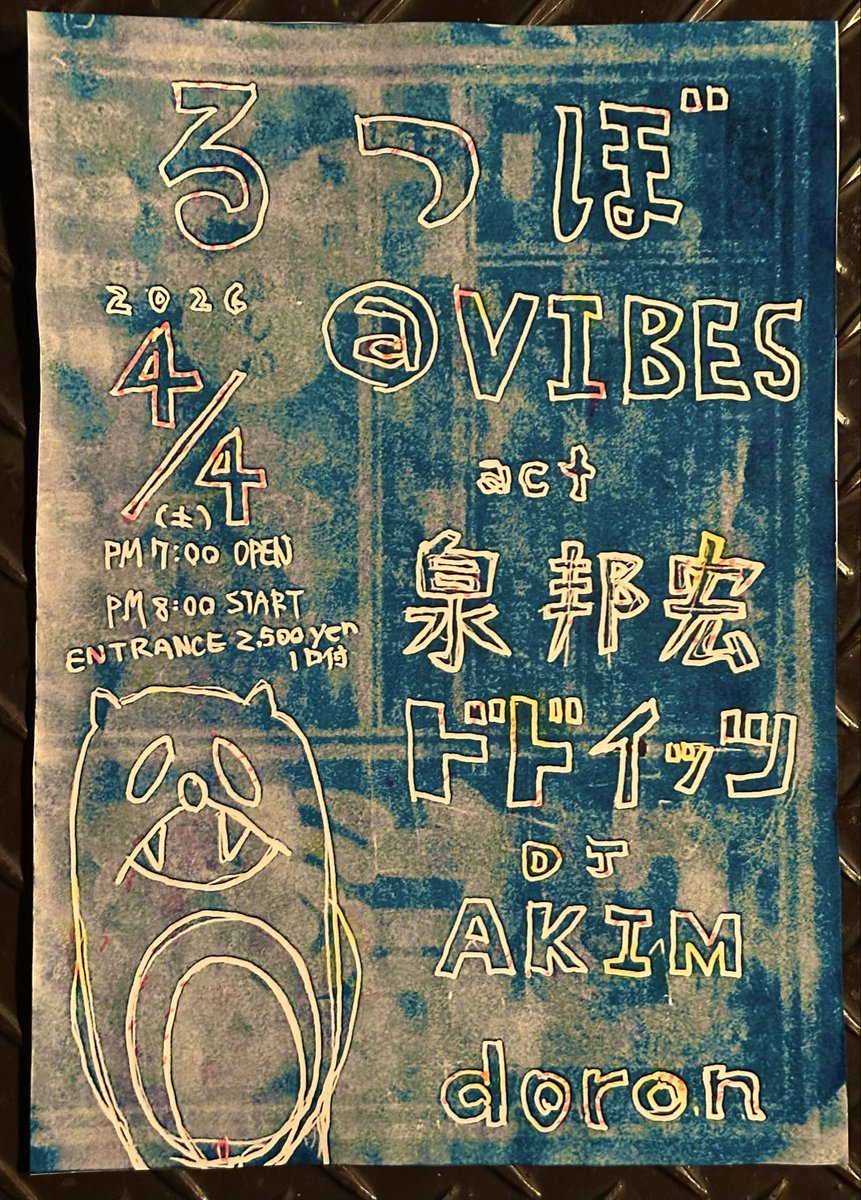 るつぼ
@VIBES
2026
4/4
(土)
PM 7:00 OPEN
PM 8:00 START
ENTRANCE 2,500 yen
1D付
act
泉邦宏
ドドイッツ
DJ
AKIM
doron